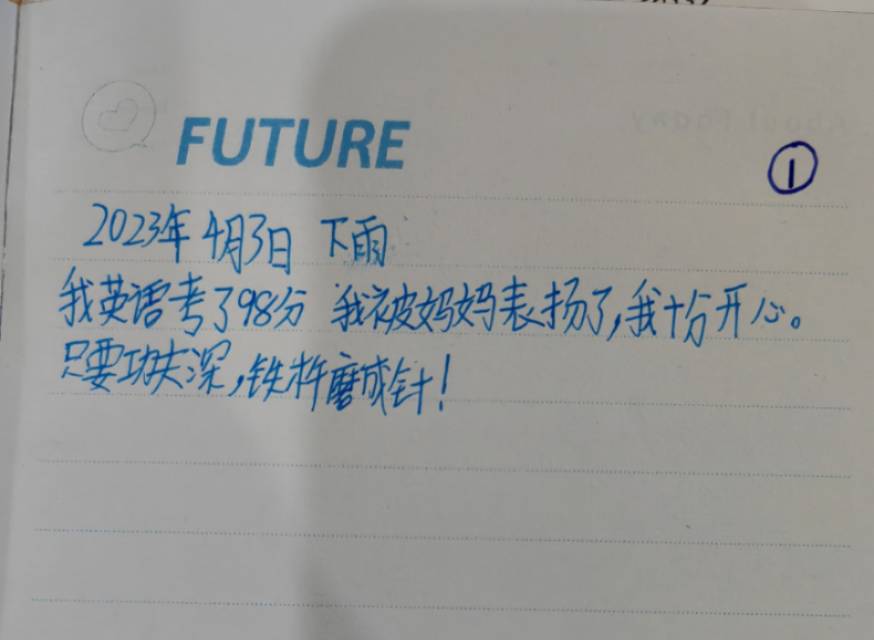 FUTURE
①
2023年4月3日 下雨
我英语考了98分 我被妈妈表扬了,我十分开心。
只要功夫深,铁杵磨成针!